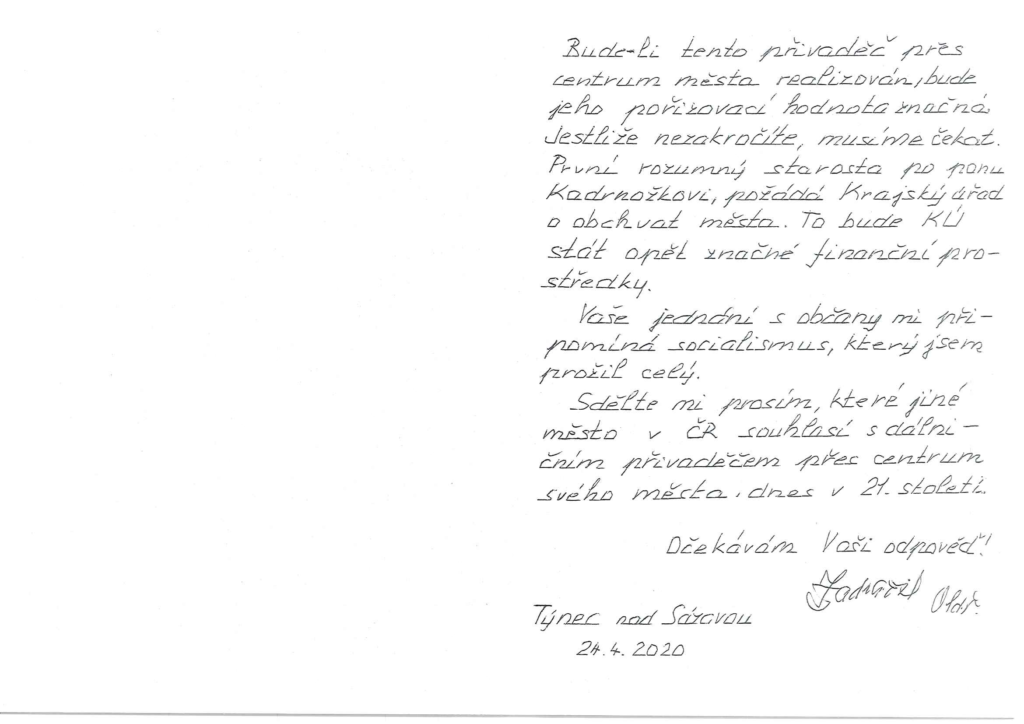 Bude-li tento přivaděč přes
centrum města realizován, bude
jeho pořizovací hodnota značná.
Jestliže nezakročíte, musíme čekat.
První rozumný starosta po panu
Kadrnožkovi, požádá Krajský úřad
o obchvat města. To bude KÚ
stát opět značné finanční pro-
středky.
Vaše jednání s občany mi při-
pomíná socialismus, který jsem
prožil celý.
Sdělte mi prosím, které jiné
město v ČR souhlasí s dálni-
čním přivaděčem přes centrum
svého města, dnes v 21. století.
Očekávám Vaši odpověď!
Oldř.
Týnec nad Sázavou
24.4.2020